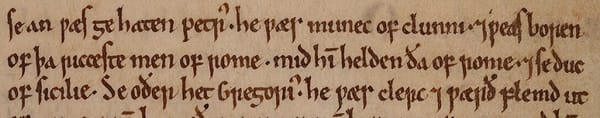 se an ƿæs ge haten petrꝰ. he ƿæs munec of clunni. ⁊ ƿæs boren
of þa ricceste men of rome. mid hī helden ða of rome. ⁊ se duc
of sicilie. Se oðer het Gregoriꝰ. he ƿæs clerc ⁊ ƿærð flemd ut